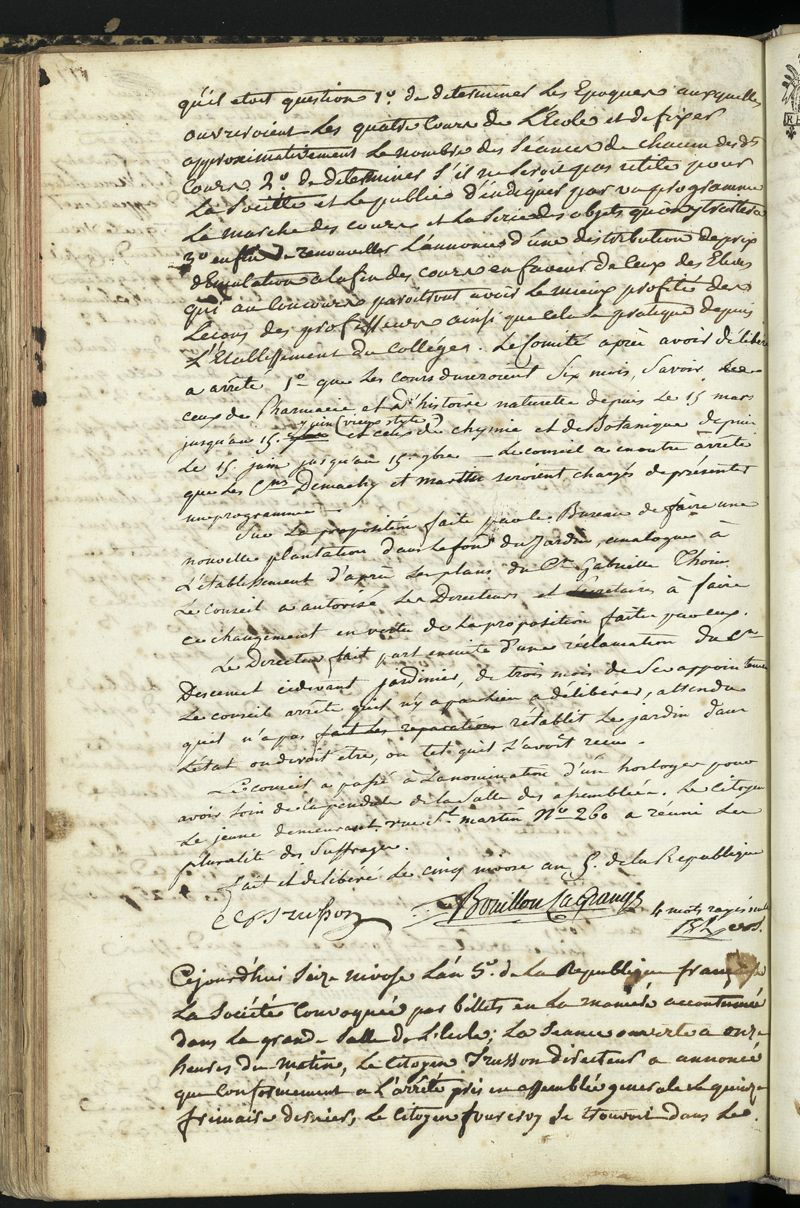 qu'il etoit question 1º. de determiner les Epoques auxquelles
ouvriroient les quatre Cours de L'Ecole et de fixer
approximativement le nombre des Séances de chacun des ds
Cours. 2º. de determiner s'il ne seroit pas utile pour
la Société et le public d'indiquer par un programme
la marche des cours et la Serie des objets qu'on y traitera
3º enfin de renouveller l'annonce d'une distribution de prix
d'Emulation a la fin des cours en faveur de ceux des Eleves
qui au Concours paroitront avoir le mieux profité des
Leçons des professeurs ainsi que cela se pratique depuis
L'Etablissement du Collége. Le Comité après avoir délibéré
a arrêté 1º que les cours dureroient Six mois, Savoir
ceux de Pharmacie et d'histoire naturelle depuis le 15 mars
jusqu'au 15. juin (vieux style) et ceux de chymie et de Botanique depuis
le 15. juin jusqu'au 15. 7bre — Le conseil a en outre arrêté
que les Cens Demachy et Marthe seroient chargés de présenter
un programme —
Sur la proposition faite par le Bureau de faire une
nouvelle plantation dans le fond du Jardin, analogue à
L'établissement d'après les plans du Cen Gabrielle Thoin
Le conseil a autorisé les Directeurs et à faire
ce changement en vertu de la proposition faite par eux.
Le Directeur fait part ensuite d'une réclamation du Cen
Descemet cidevant jardinier, de trois mois de ses appointemens
Le conseil arrête qu'il n'y a pas lieu a déliberer, attendu
qu'il n'a pas fait les reparations rétablit le jardin dans
L'état ou devoit etre, ou tel qu'il l'avoit recu.
Le conseil a passé à la nomination d'un horloger pour
avoir soin de la pendule de la Salle des assemblées. Le Citoyen
Le jeune demeurant rue St. martin Nº 260 a réuni la
pluralité des Suffrages.
fait et déliberé le cinq nivose an 5. de la Republique
Trusson Bouillon LaGrange 4 mots rayés nuls
Cejourd'hui Seize nivose L'an 5e. de la Republique française
La Société Convoquée par billets en la maniere accoutumée
dans la grande Salle de L'école; la Seance ouverte a onze
heures du matin, Le Citoyen Trusson directeur a annoncé
que Conformément a L'arrêté pris en assemblée generale le quinze
frimaire dernier, Le Citoyen fourcroy se trouvoit dans le